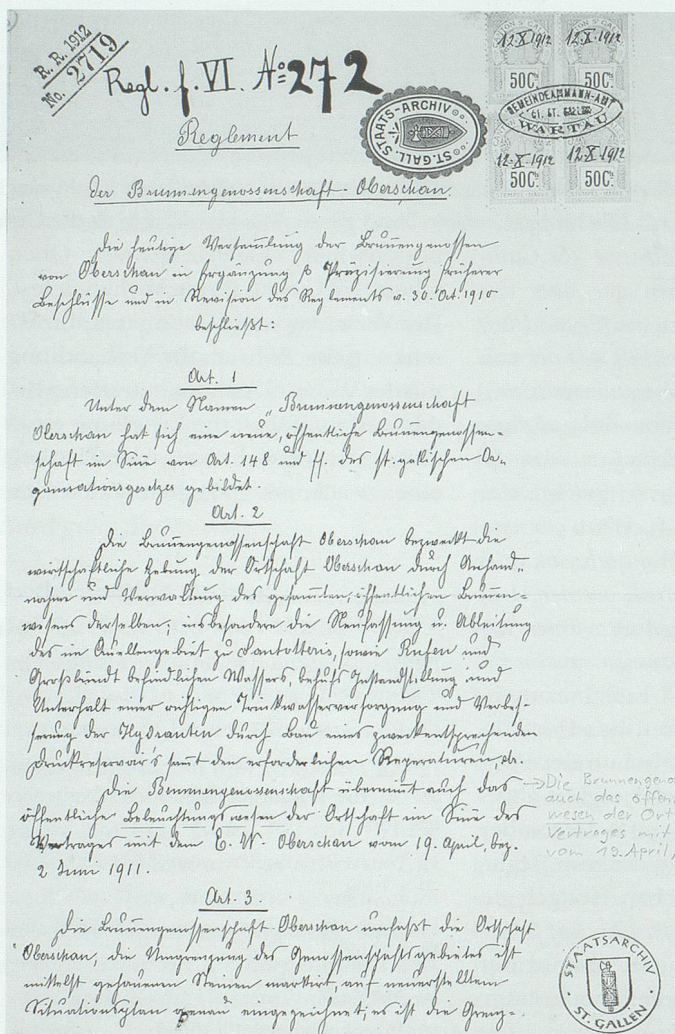 R. R. 1912
No. 2719
Regl. f. VI. No 272
12.X.1912 12.X.1912
50Cs. 50Cs.
GEMEINDEAMMANN-AMT
WARTAU
12.X.1912 12.X.1912
50Cs. 50Cs.
STAATS-ARCHIV ST. GALL.
Reglement
der Brunnengenossenschaft Oberschan.
Die heutige Versammlung der Brunnengenossen
von Oberschan in Ergänzung & Präzisierung früherer
Beschlüsse und in Revision des Reglements v. 30. Oct. 1910
beschließt:
Art. 1
Unter dem Namen „Brunnengenossenschaft
Oberschan hat sich eine neue, öffentliche Brunnengenossen-
schaft im Sinne von Art. 148 und ff. des st. gallischen Or-
ganisationsgesetzes gebildet.
Art. 2
Die Brunnengenossenschaft Oberschan bezweckt die
wirtschaftliche Hebung der Ortschaft Oberschan durch Anhand-
nahme und Verwaltung des gesammten, öffentlichen Brunnen-
wesens derselben; insbesondere die Neufassung u. Ableitung
des im Quellengebiet zu sowie Rufen und
Großbündt befindlichen Wassers, behufs Instandstellung und
Unterhalt einer richtigen Trinkwasserversorgung und Verbes-
serung der Hydranten durch Bau eines zweckentsprechenden
Druckreservoir's samt den erforderlichen Reperaturen,
Die Brunnengenossenschaft übernimmt auch das
öffentliche Beleuchtungswesen der Ortschaft im Sinne des
Vertrages mit dem E. W. Oberschan vom 19. April, bez.
2 Juni 1911.
→ Die Brunnengeno
auch das öffen
wesen der Ort
Vertrages mit
vom 19. April,
Art. 3.
Die Brunnengenossenschaft Oberschan umfaßt die Ortschaft
Oberschan, die Umgrenzung des Genossenschaftsgebietes ist
mittelst gehauenen Steinen markirt, auf neuerstelltem
Situationsplan genau eingezeichnet; es ist die Grenz-
STAATSARCHIV
ST. GALLEN